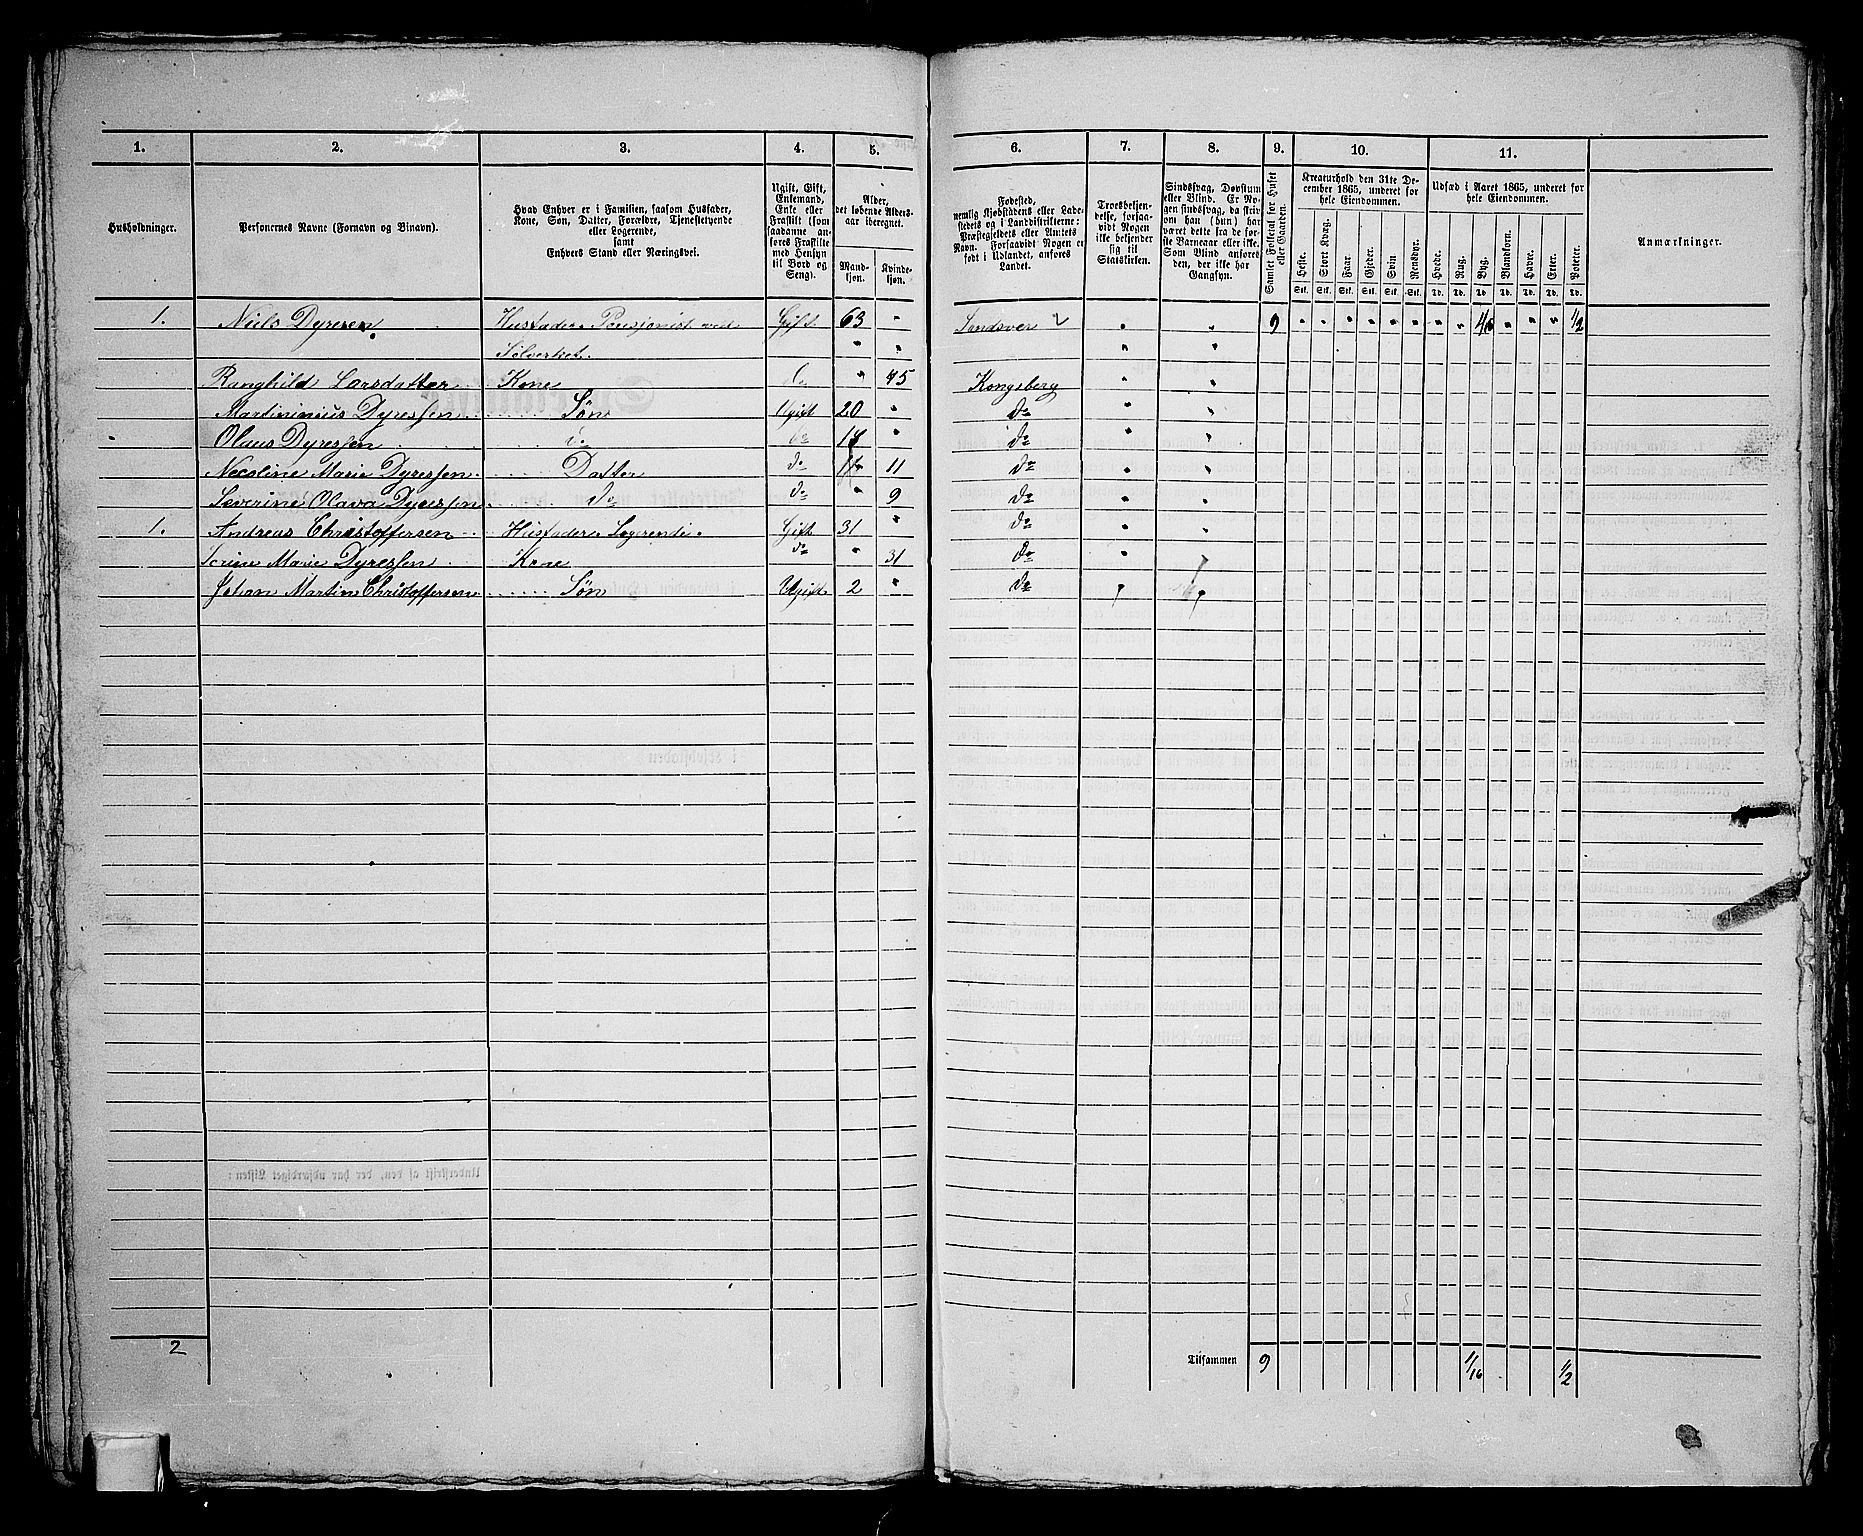 1. 2. 3. 4. 5. 6. 7. 8. 9. 10. 11.
Husholdninger.
Personernes Navne (Fornavn og Binavn).
Hvad Enhver er i Familien, saasom Husfader,
Kone, Søn, Datter, Forældre, Tjenestetyende
eller Logerende,
samt
Enhvers Stand eller Næringsvei.
Ugift, Gift,
Enkemand,
Enke eller
Fraskilt (som
saadanne an-
føres Fraskilte
med Hensyn
til Bord og
Seng).
Alder,
det løbende Alders-
aar iberegnet.
Mand-
kjøn.
Kvinde-
kjøn.
Fødested,
nemlig Kjøbstadens eller Lade-
stedets og i Landdistrikterne:
Præstegjeldets eller Amtets
Navn. Forsaavidt Nogen er
født i Udlandet, anføres
Landet.
Troesbekjen-
delse, forsaa-
vidt Nogen
ikke bekjender
sig til
Statskirken.
Sindssvag, Døvstum
eller Blind. Er No-
gen sindssvag, da skriv
om han (hun) har
været dette fra de før-
ste Barneaar eller ikke.
Som Blind anføres
den, der ikke har
Gangsyn.
Samlet Folketal for Huset
eller Gaarden.
Kreaturhold den 31te De-
cember 1865, underet for
hele Eiendommen.
Heste. Stort Kvæg. Faar. Gjeder. Svin Rensdyr.
Stk. Stk. Stk. Stk. Stk. Stk.
Udsæd i Aaret 1865, underet for
hele Eiendommen.
Hvede. Rug. Byg. Blandkorn. Havre. Erter. Poteter.
Td. Td. Td. Td. Td. Td. Td.
Anmærkninger.
1. Niels Dyresen Husfader Pensjonist ved Gift 63 " Sandsver " " 9 " " " " " " " " " " " " 1/2
Sølverket. " " " "
Ranghild Larsdatter Kone do " 45 Kongsberg " "
Martininius Dyressen Søn Ugift 20 " do " "
Olaus Dyressen do do " do " "
Nicoline Marie Dyressen Datter do 11 do " "
Severine Olava Dyressen do do " 9 do " "
1. Andreas Christoffersen Husfader Logerende Gift 31 " do " "
Marie Dyressen Kone do " 31 do " "
Johan Martin Christoffersen Søn Ugift 2 " do " "
2
Tilsammen 9 1/16 1/2